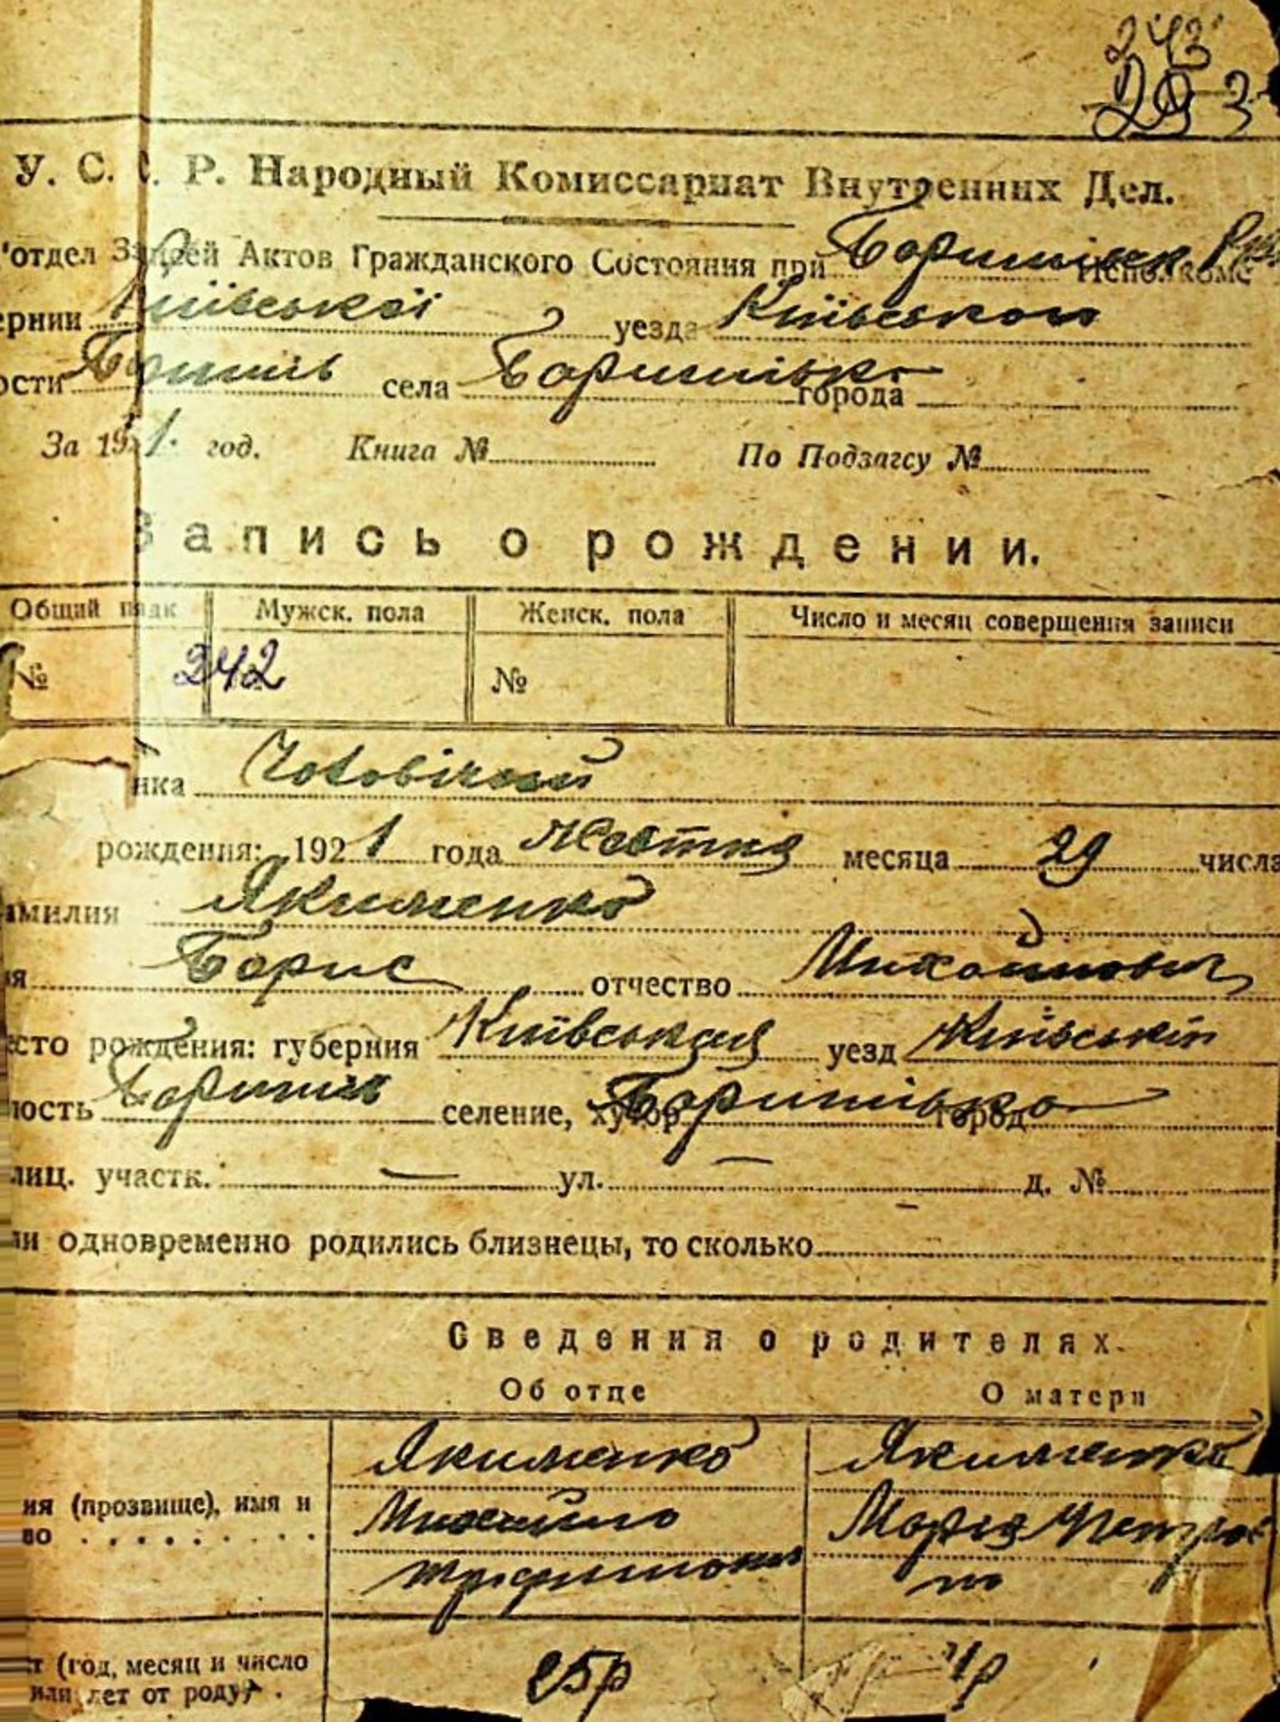 243
293
У. С. С. Р. Народный Комиссариат Внутренних Дел.
отдел Записей Актов Гражданского Состояния при Исполкоме
ернии Київської уезда Київского
ости Бориспіль села города
За 1921 год. Книга № По Подзагсу №
Запись о рождении.
Общий Мужск. пола Женск. пола Число и месяц совершения записи
№ 242 №
нка Чоловічий
рождения: 1921 года месяца 29 числа
амилия Якименко
ия Борис отчество Михайлович
есто рождения: губерния Київська уезд Київський
лость селение, хутор город
лиц. участк. — ул. — д. №
ли одновременно родились близнецы, то сколько
Сведения о родителях.
Об отце О матери
Якименко Якименко
ия (прозвище), имя и
во . . . . . . . . .
Михайло Мария
ст (год, месяц и число
или лет от роду) .
25р